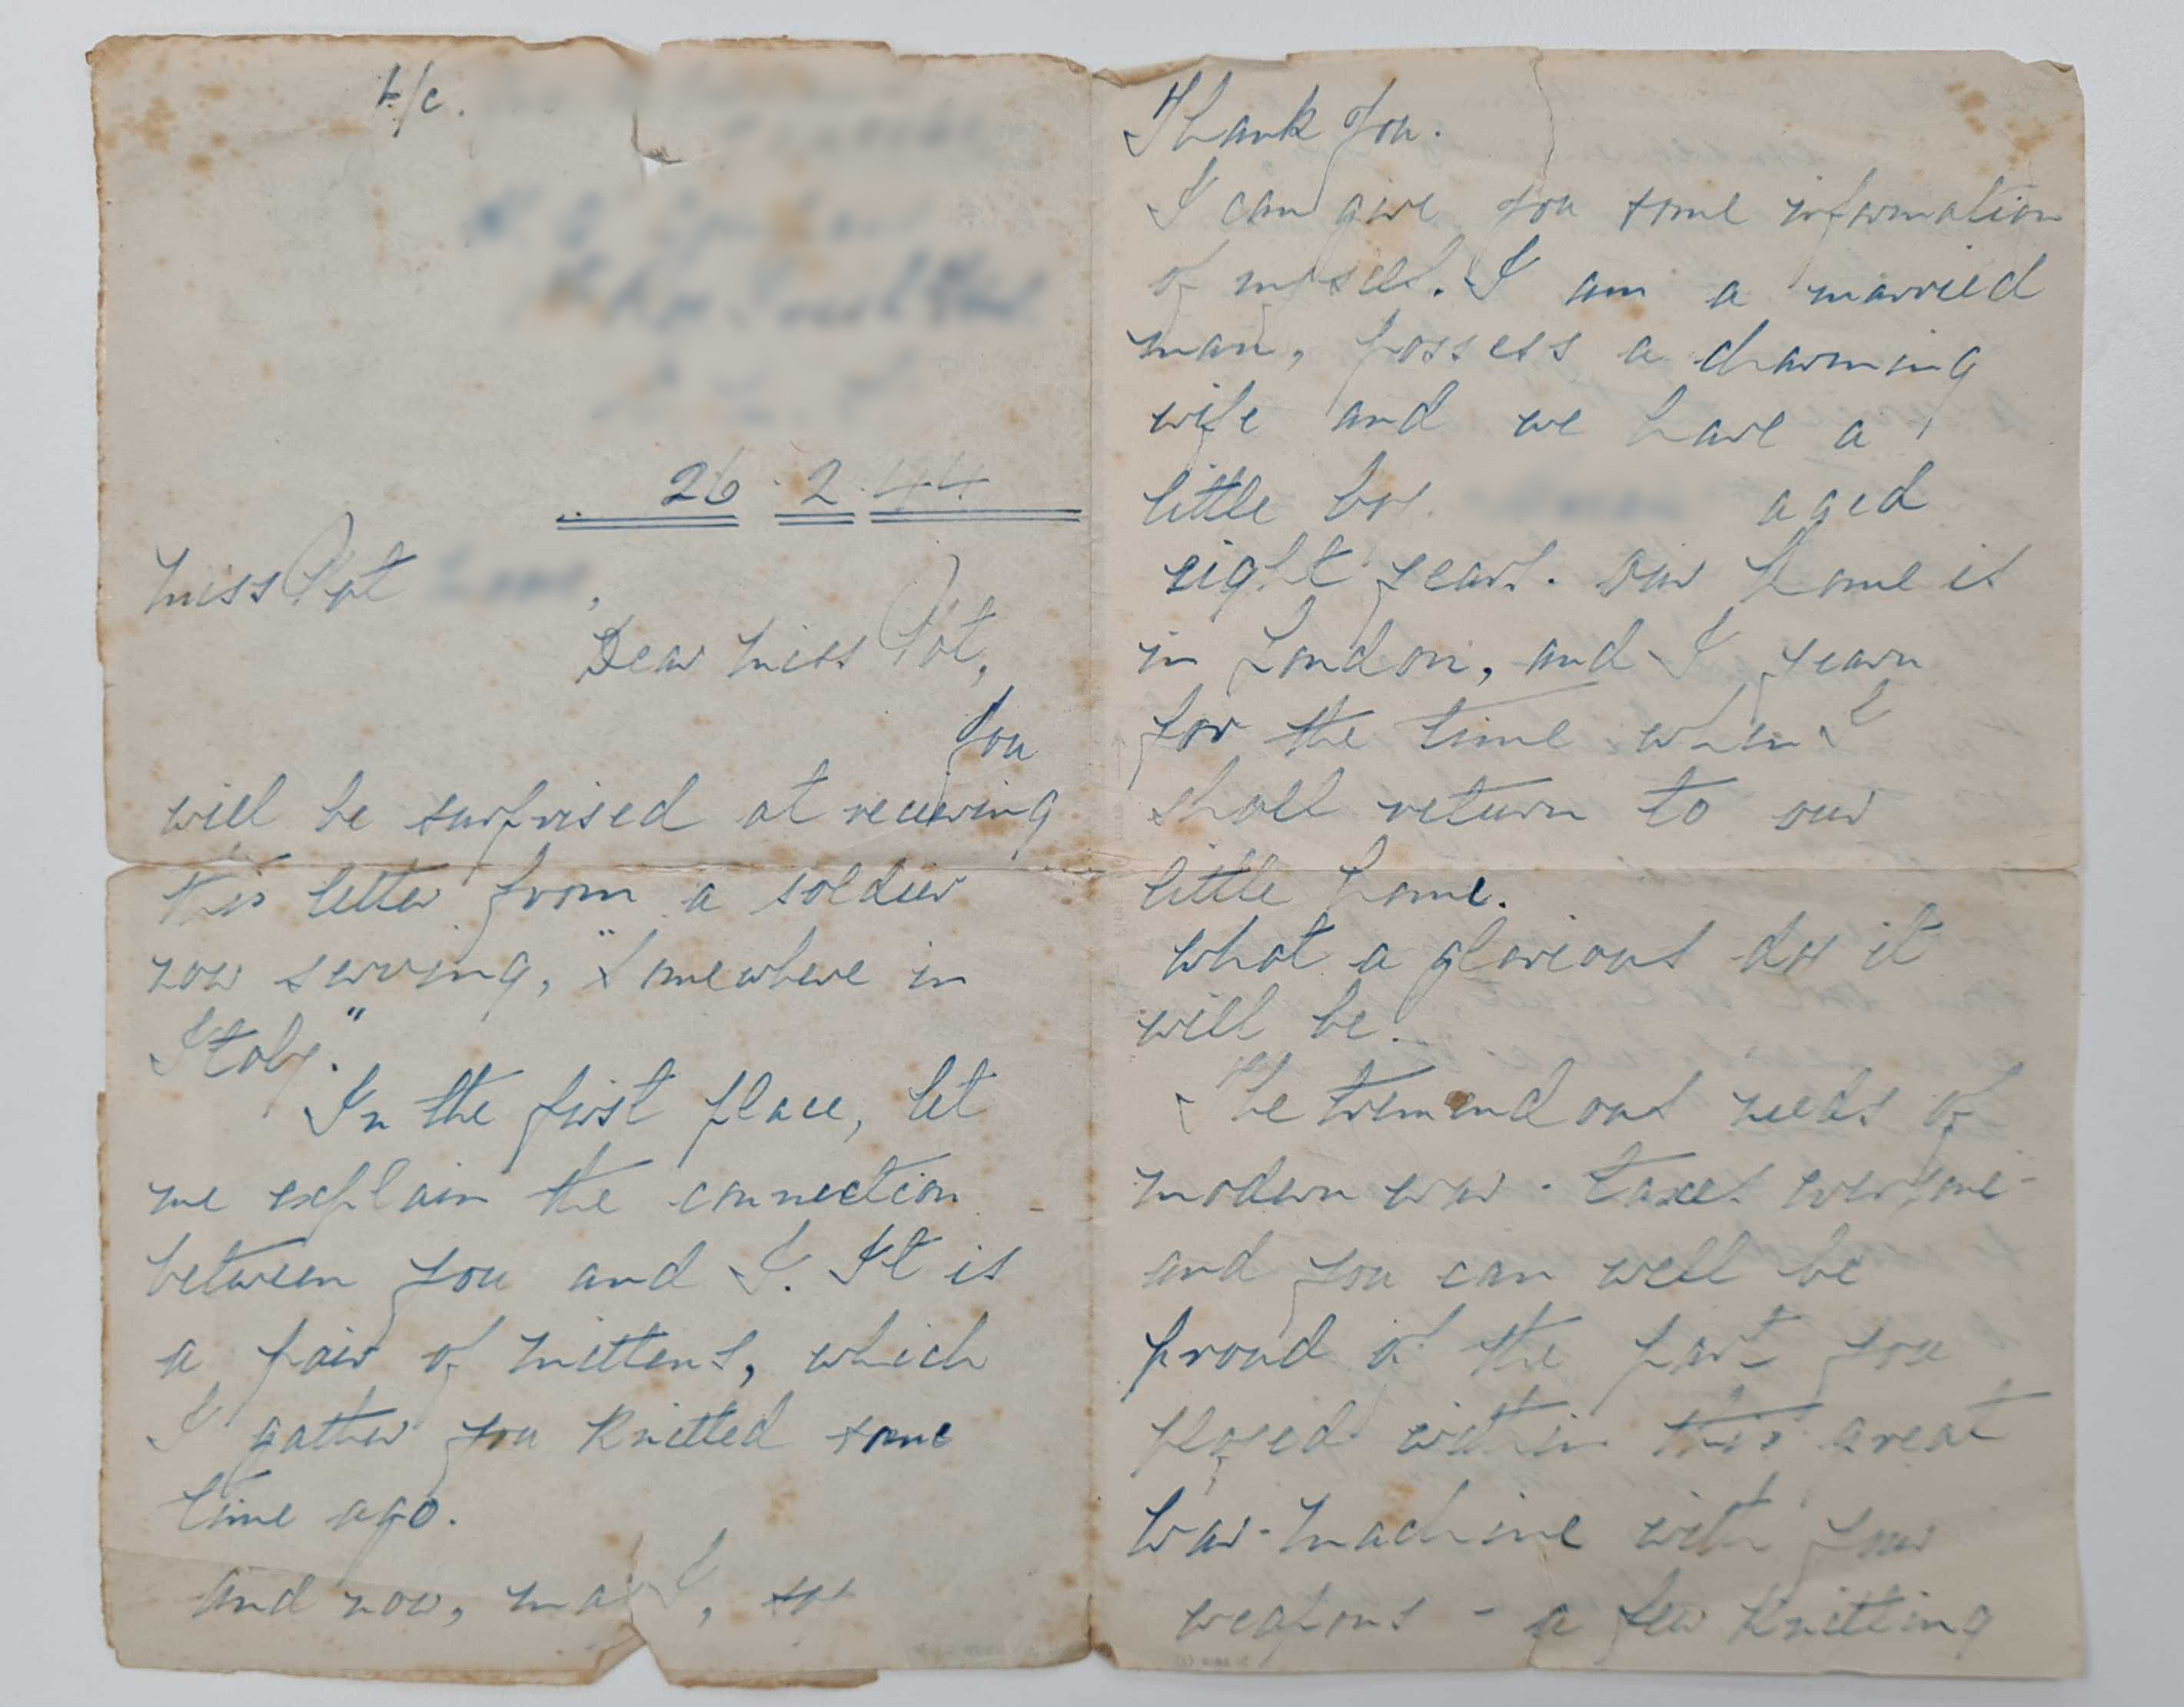 L/c.
26.2.44
Miss Pat
Dear Miss Pat,
You
will be surprised at recieving
this letter from a soldier
now serving, "Somewhere in
Italy."
In the first place, let
me explain the connection
between you and I. It is
a pair of mittens, which
I gather you knitted some
time ago.
And now, may I, say
Thank You.
I can give you some information
of myself. I am a married
man, possess a charming
wife and we have a
little boy. aged
eight years. Our home is
in London, and I yearn
for the time when I
shall return to our
little home.
What a glorious day it
will be.
The tremendous needs of
modern war - taxes everyone -
and you can well be
proud of the part you
played within this great
War-Machine with your
weapons - a few knitting